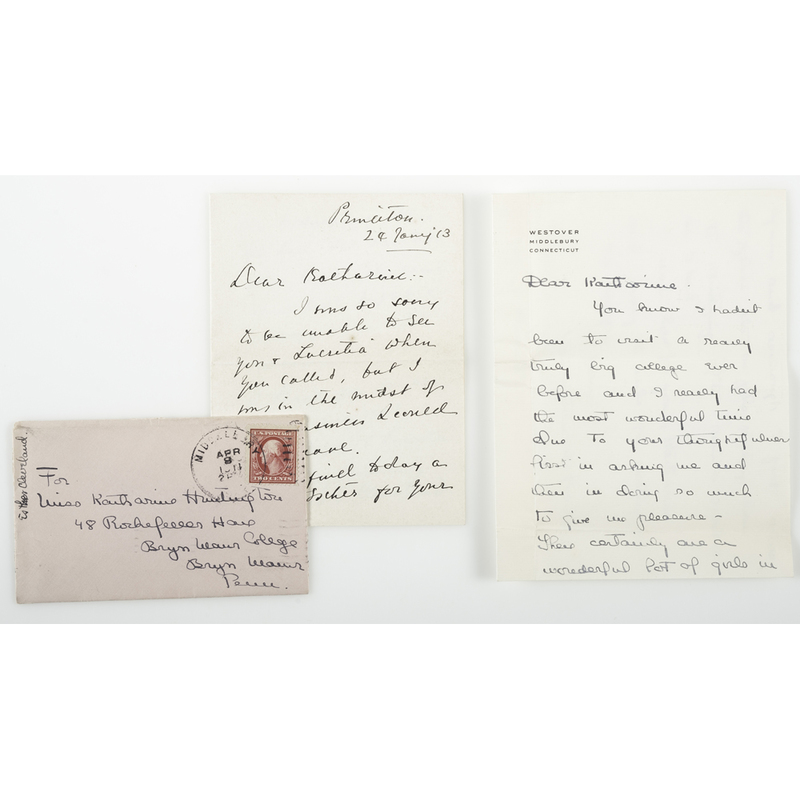 Princeton.
24 Jany 13
Dear Katharine:-
I was so sorry
to be unable to see
you & Lucretia when
you called, but I
was in the midst of
business I could
leave.
today a
for your
WESTOVER
MIDDLEBURY
CONNECTICUT
Dear Katharine.
You know I hadn't
been to visit a really
truly big college ever
before and I really had
the most wonderful time
due to your thoughtfulness
first in asking me and
then in doing so much
to give me pleasure -
There certainly are a
wonderful lot of girls in
Esther Cleveland.
APR
9
U.S. POSTAGE
TWO CENTS
For
Miss Katharine Huntington
48 Rockefeller Hall
Bryn Mawr College
Bryn Mawr
Penn.